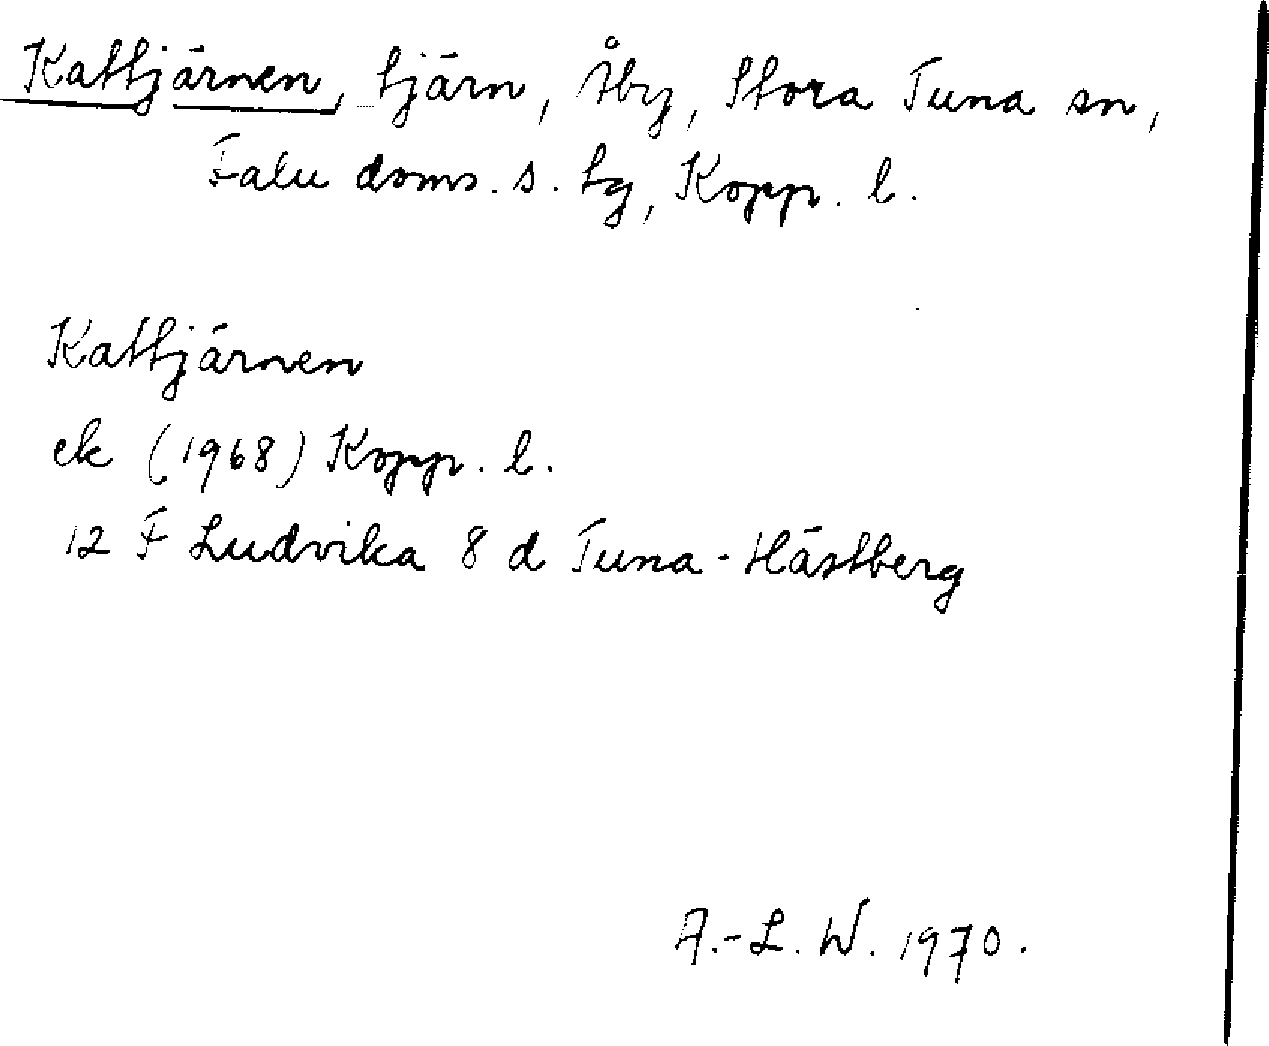 Kattjärnen, tjärn, Åby, Stora Tuna sn,
Falu doms. s. tg, Kopp. l.
Kattjärnen
ek (1968) Kopp. l.
12 F Ludvika 8 d Tuna-Hästberg
A.-L. W. 1970.